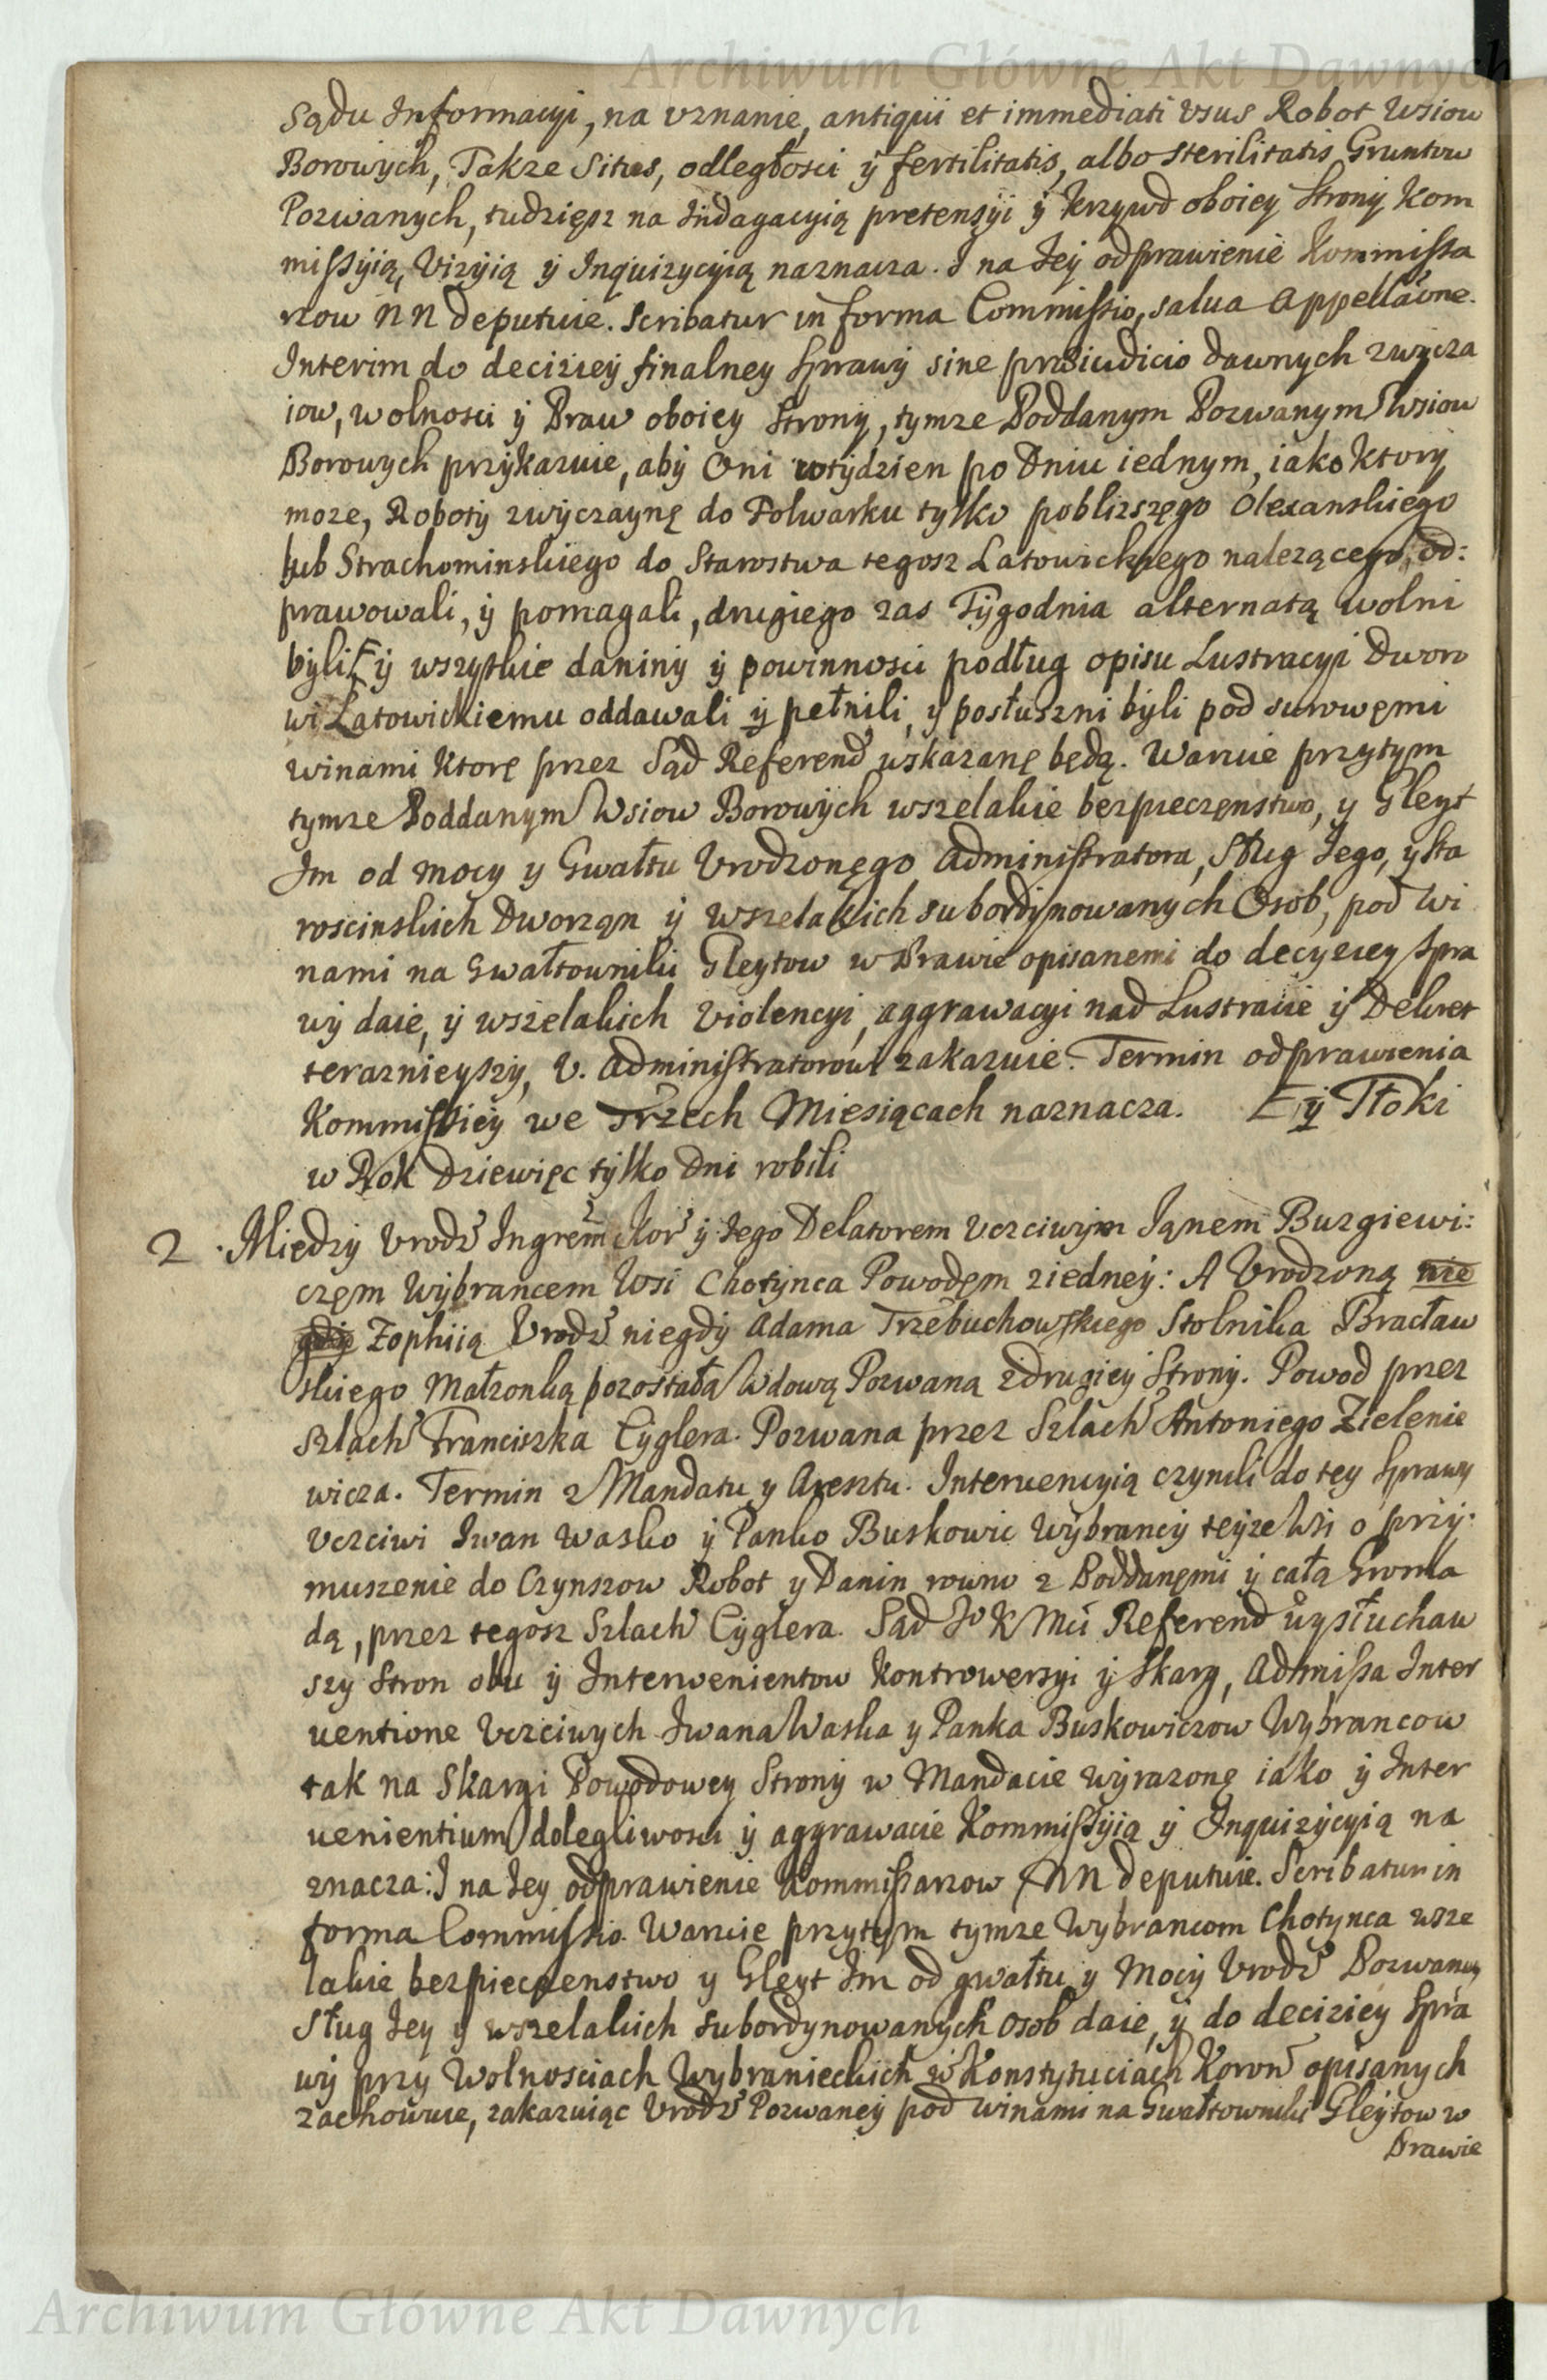 Archiwum Główne Akt Dawnych
Sądu Informacyi, na vznanie, antiqui et immediati vsus Robot Wsiow
Borowych, Takze Situs, odległosci ÿ fertilitatis, albo sterilitatis Gruntow
Pozwanych, tudzięsz na Indagacyią pretensyi ÿ krzywd oboiey Strony Kom
missÿią, Vizÿią ÿ Inquizycyią naznacza. I na Jeÿ odsprawienie Kommissa
rzow NN deputuie. Scribatur in forma Commissio, salua Appellaōne.
Interim do deciziey finalney Sprawÿ sine præiudicio dawnych zwycza
iow, wolnosci ÿ Praw oboiey Strony, tymze Poddanym Pozwanym Wsiow
Borowych przÿkazuie, abÿ Oni wtÿdzien po Dniu iednym, iako ktorÿ
moze, Robotÿ zwÿczaynę do Folwarku tylko poblizszęgo Olexanskiego
lub Strachominskiego do Starostwa tegosz Latowickiego nalezącego, od:
prawowali, ÿ pomagali, drugiego zas Tÿgodnia alternatą wolni
bÿli, ÿ wszystkie daninÿ ÿ powinnosci podług opisu Lustracyi Dworo
wi Latowickiemu oddawali ÿ pełnili, y posłuszni bÿli pod surowęmi
winami ktorę przez Sąd Referend̃ wskazanę będą. Waruie przytym
tymze Poddanym Wsiow Borowÿch wszelakie bezpieczęnstwo, y Gleyt
Im od mocy y Gwałtu Vrodzonęgo Administratora, Sług Jego, y Sta
roscinskich Dworząn ÿ wszelakich subordynowanych Osob, pod wi
nami na Gwałtowniki Gleytow w Prawie opisanemi do decyziey Spra
wÿ daie, ÿ wszelakich violencyi, aggrawacyi nad Lustracie ÿ Dekret
teraznieyszy, V. Administratorowi zakazuie. Termin odsprawienia
Kommissieÿ we Trzech Miesiącach naznacza. ÿ Tłoki
w Rok dziewięc tÿlko dni robili
2. Miedzÿ Vrodz̃ Ingrem̃ Kor̃ ÿ Jego Delatorem Vcziwym Jąnem Buzgiewi:
częm Wÿbrancem Wsi Chotÿnca Powodęm ziedneÿ: A Vrodzoną nie
gdÿ Zophiią Vrodz̃ niegdÿ Adama Trzebuchowskiego Stolnika Bracław
skiego Małzonką pozostałą Wdową Pozwaną zdrugieÿ Stronÿ. Powod przez
Szlach̃ Franciszka Cÿglera. Pozwana przez Szlach̃ Antoniego Zielenie
wicza. Termin z Mandatu y Aresztu. Interuencyią czynili do tey Sprawy
Vcziwi Iwan Wasko ÿ Panko Buskowic Wÿbrancÿ teÿze Wsi o przÿ:
muszenie do Czynszow Robot y Danin rowno z Poddanęmi ÿ całą Groma
dą, przez tegosz Szlach̃ Cÿglera. Sąd JoKMci Referend̃ wysłuchaw
szy Stron obu ÿ Interwenientow Kontrowersyi ÿ Skarg, Admissa Inter
uentione Vcziwych Iwana Waska y Panka Buskowiczow Wÿbrancow
tak na Skargi Powodowey Stronÿ w Mandacie wÿrazonę iako ÿ Inter
uenientium dolegliwosci ÿ aggrawacie Kommissÿią ÿ Inquizÿcyią na
znacza: I na Jey odsprawienie Kommissarzow NN deputuie. Scribatur in
forma Commissio. Waruie przytÿm tymze Wybrancom Chotynca wsze
lakie bezpieczenstwo y Gleyt Im od gwałtu y Mocÿ Vrodz̃ Pozwaney
Sług Jeÿ y wszelakich subordynowanych osob daie, ÿ do deciziey Spra
wÿ przÿ Wolnosciach Wybranieckich w Konstytuciach Koron̄ opisanych
zachowuie, zakazuiąc Vrodz̃ Pozwaneÿ pod winami na Gwałtowniki Gleÿtow w
Prawie
Archiwum Główne Akt Dawnych